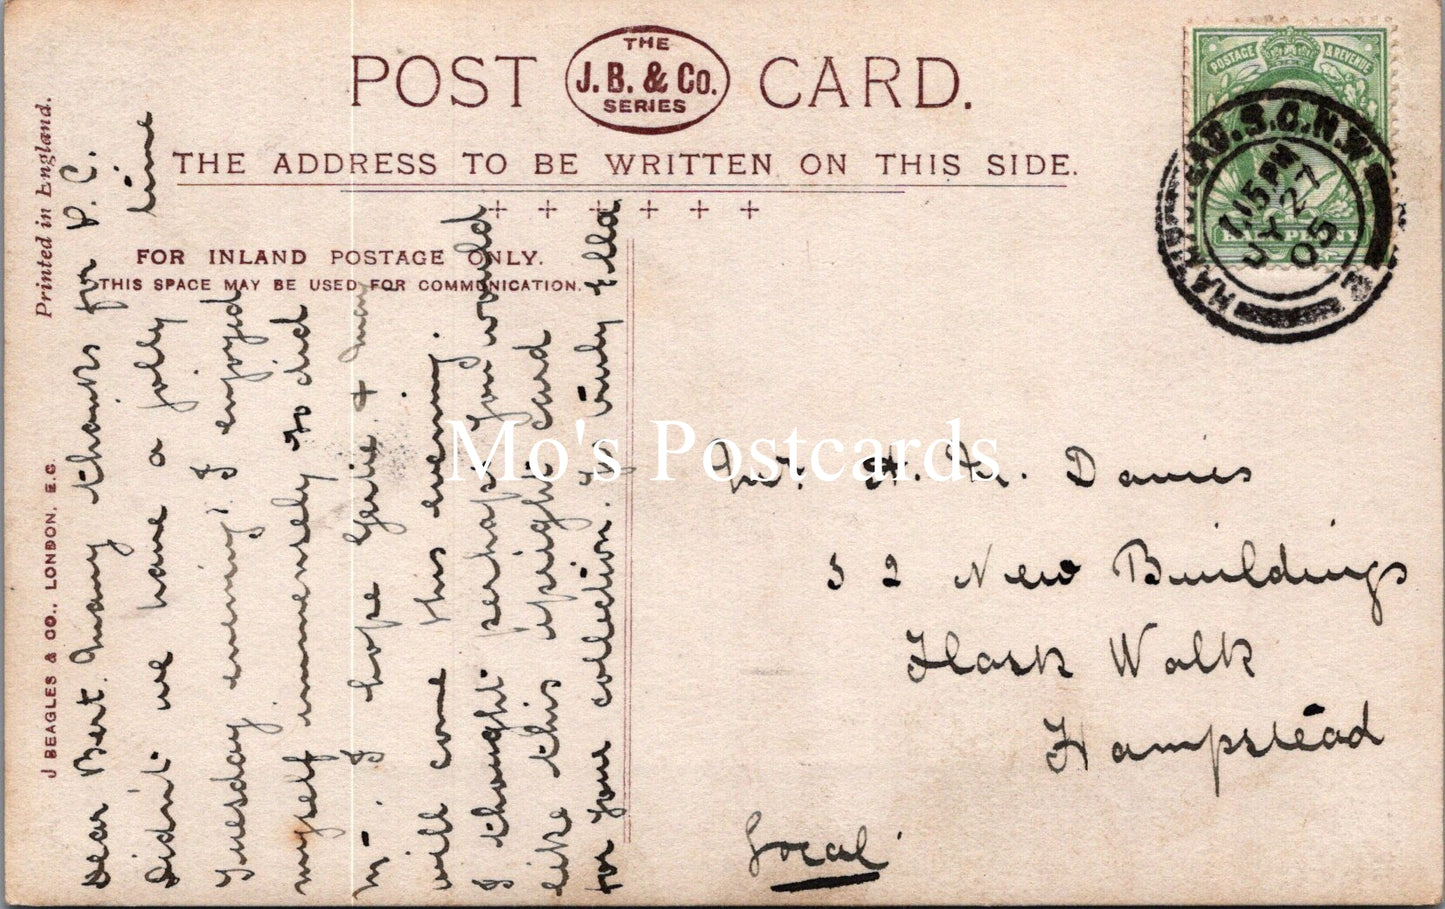 POST CARD.
THE
J.B. & Co.
SERIES
THE ADDRESS TO BE WRITTEN ON THIS SIDE.
FOR INLAND POSTAGE ONLY.
THIS SPACE MAY BE USED FOR COMMUNICATION.
Printed in England.
J BEAGLES & CO., LONDON. E.C.
Dear Bert. Many thanks for P.C.
Didn't we have a jolly time
Tuesday evening! I enjoyed
myself immensely so did
M. I hope Gertie + May
will come this evening.
I thought perhaps you would
like this upright card
for your collection. Yrs truly Ella
Mr. H. Davies
32 New Buildings
Flask Walk
Hampstead
Local
POSTAGE & REVENUE
HALFPENNY
HAMPSTEAD. S.O.N.W
1.15 PM
JY 27
05
Mo's Postcards